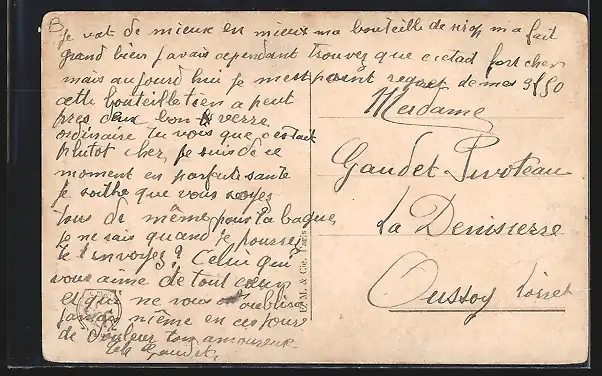 je vat de mieux en mieux ma bouteille de sirop m a fait
grand bien javais cependant trouvez que cetad fort cher
mais aujourd hui je m est point regret de mes 9f50
cette bouteille tien a peut
pres deux bon verre
ordinaire tu vois que c etait
plutot cher, je suis de ce
moment en parfaite sante
je soithe que vous soyez
tous de même pour ta bague,
je ne sais quand je pousser
te l envoyez? Celui qui
vous aime de tout coeur
et qui ne vous oublise
jamais même en ces jours
de douleur ton amoureux
Gaudet,
E. M. & Cie, Paris
Merdame
Gaudet Pivoteau
La Denisierse
Oussoy Loiret